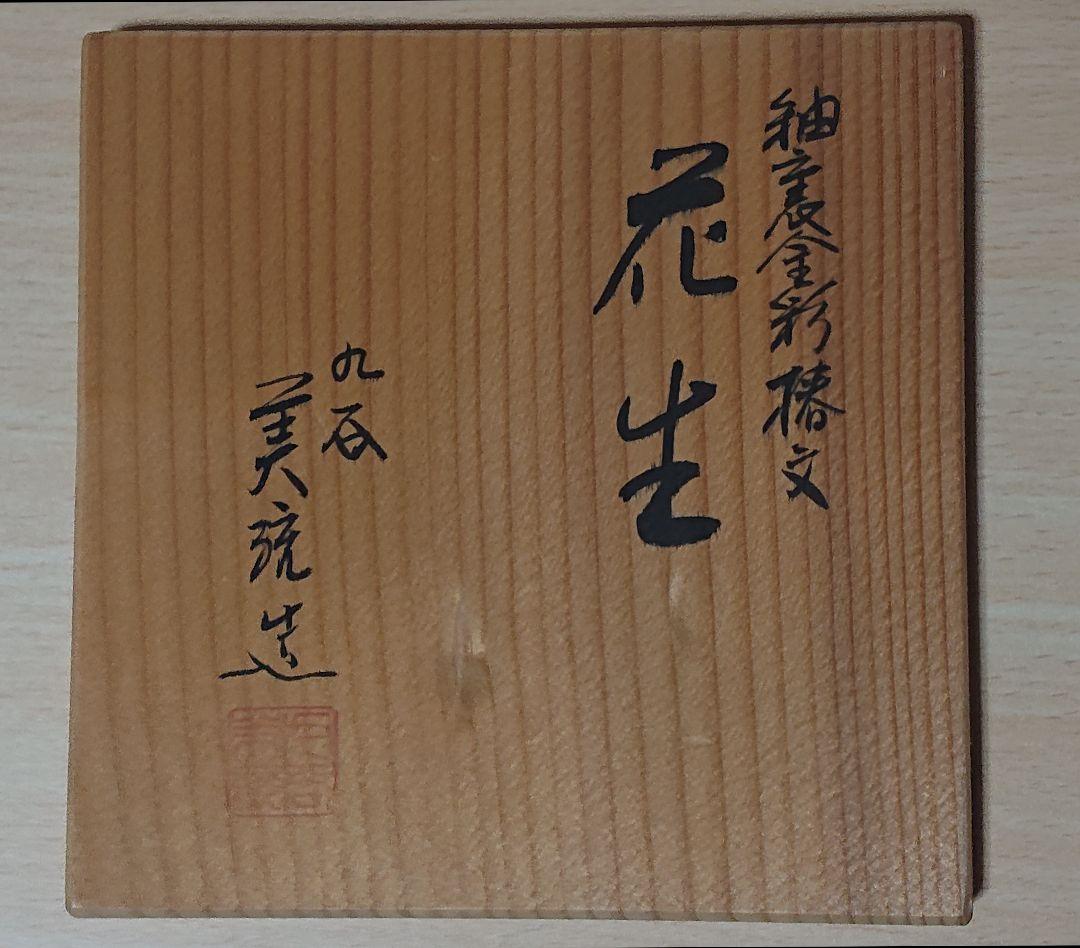 釉裏金彩椿文
花生
九谷
美琉造